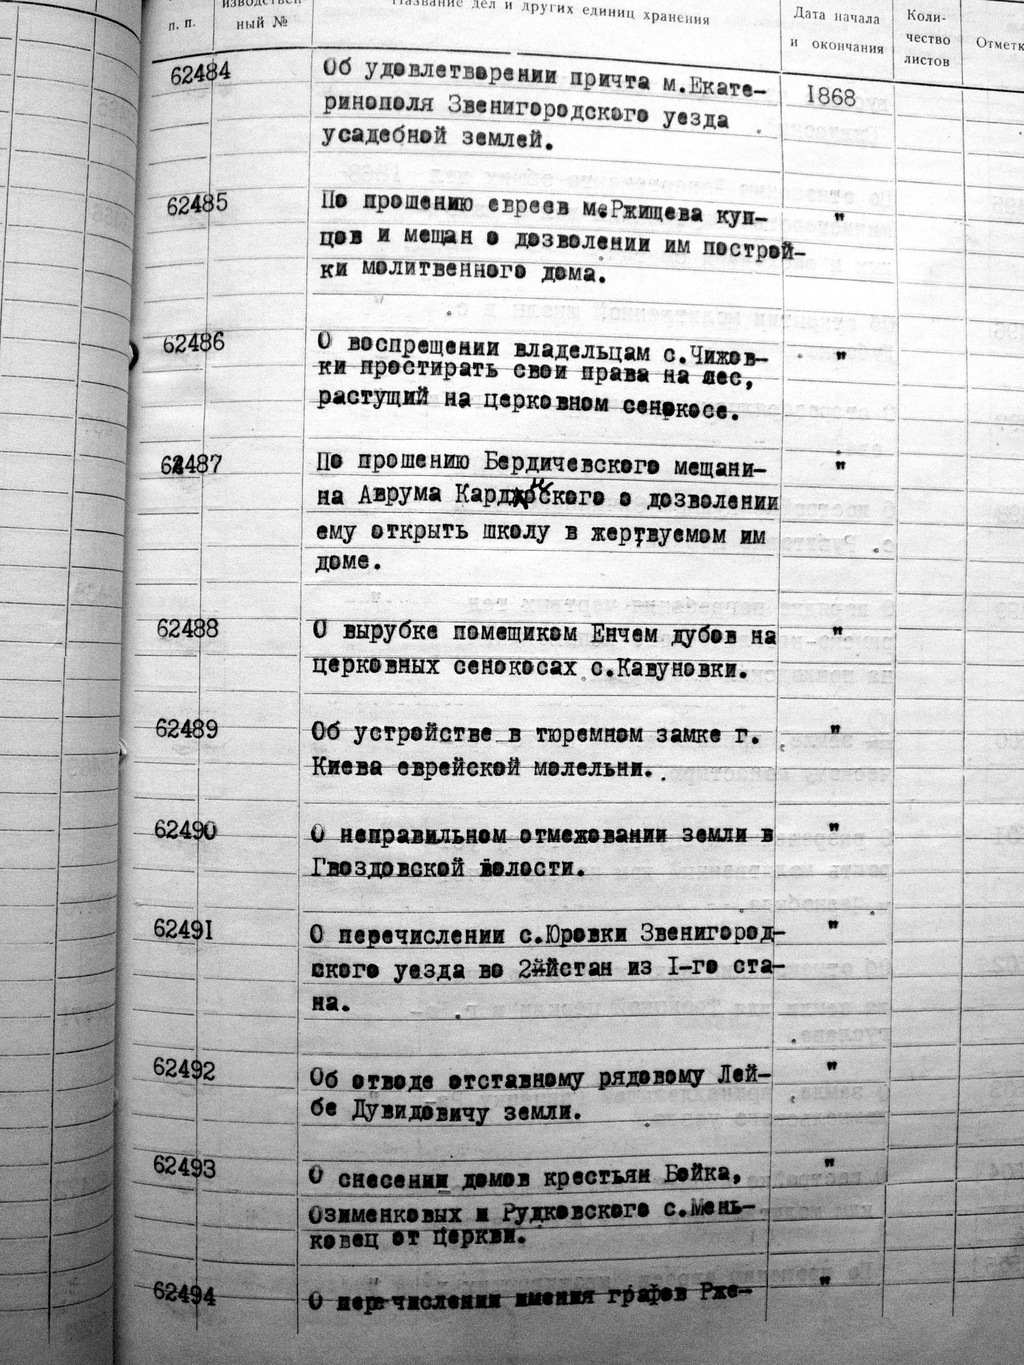 п. п.
ный №
Название дел и других единиц хранения
Дата начала
и окончания
Коли-
чество
листов
62484
Об удовлетворении причта м.Екате-
1868
ринополя Звенигородского уезда
усадебной землей.
62485
По прошению евреев м.Ржищева куп-
"
цов и мещан о дозволении им построй-
ки молитвенного дома.
62486
О воспрещении владельцам с.Чижов-
"
ки простирать свои права на лес,
растущий на церковном сенокосе.
62487
По прошению Бердичевского мещани-
"
на Аврума о дозволении
ему открыть школу в жертвуемом им
доме.
62488
О вырубке помещиком Енчем дубов на
"
церковных сенокосах с.Кавуновки.
62489
Об устройстве в тюремном замке г.
"
Киева еврейской молельни.
62490
О неправильном отмежовании земли в
"
Гвоздовской волости.
62491
О перечислении с.Юровки Звенигород-
"
ского уезда во стан из I-го ста-
на.
62492
Об отводе отставному рядовому Лей-
"
бе Дувидовичу земли.
62493
О снесении домов крестьян Бойка,
"
Озименковых и Рудковского с.Мень-
ковец от Церкви.
62494
О перечислении имения графов Рже-
"